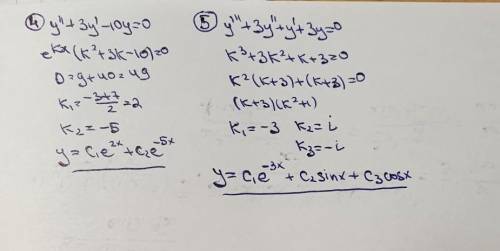 ④ y''+3y'-10y=0
e^{kx}(k²+3k-10)=0
D=9+40=49
k₁=\frac{-3+7}{2}=2
k₂=-5
y=c₁e^{2x}+c₂e^{-5x}
⑤ y'''+3y''+y'+3y=0
k³+3k²+k+3=0
k²(k+3)+(k+3)=0
(k+3)(k²+1)
k₁=-3 k₂=i
k₃=-i
y=c₁e^{-3x}+c₂sinx+c₃cosx